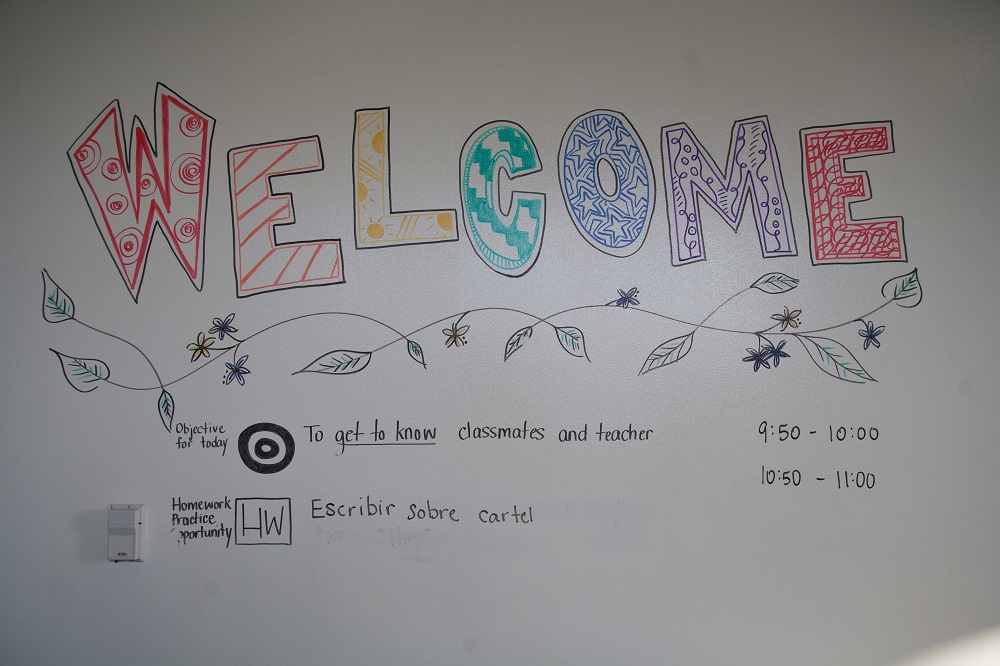 WELCOME
Objective
for today
To get to know classmates and teacher
9:50 - 10:00
10:50 - 11:00
Homework
Practice
pportunity
HW
Escribir sobre cartel